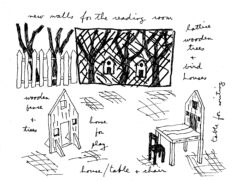 new walls for the reading room
lattice
wooden
trees
+
bird
houses
wooden
fence
+
trees
house
for
play
table for writing
house/table + chair